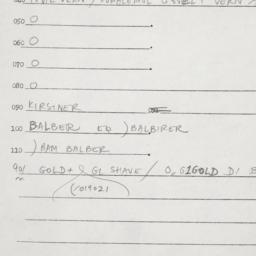 050 O
060 O
070 O
080 O
090 KIRSTNER
100 BALBER ED ) BALBIRER
110 ) BAM BALBER
901 GOLD+ & G1 SHAVE / O, G1GOLD D1
(1019021